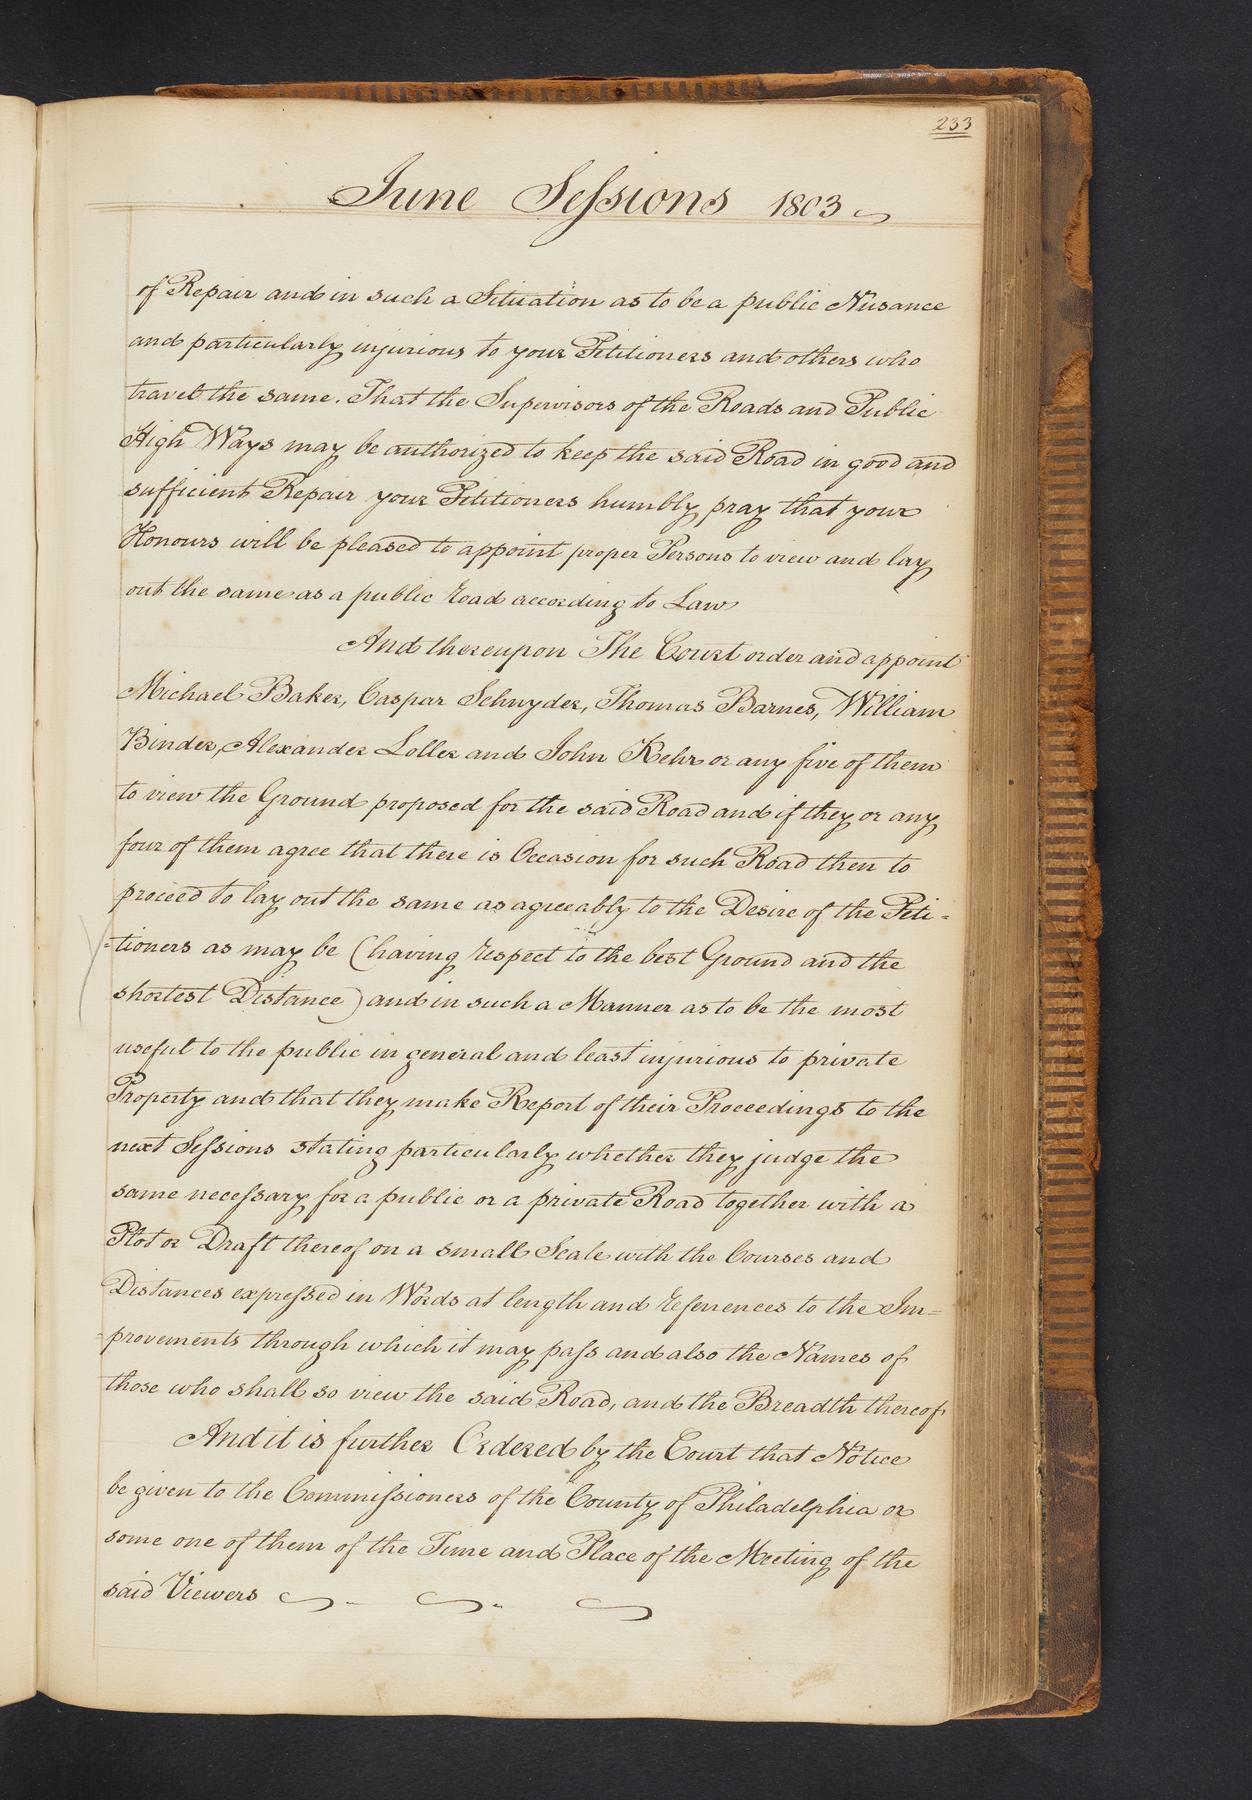 233
June Sessions 1803
of Repair and in such a Situation as to be a public Nusance
and particularly injurious to your Petitioners and others who
travel the same. That the Supervisors of the Roads and Public
High Ways may be authorized to keep the said Road in good and
sufficient Repair your Petitioners humbly pray that your
Honours will be pleased to appoint proper Persons to view and lay
out the same as a public road according to Law
And thereupon The Court order and appoint
Michael Baker, Caspar Schnyder, Thomas Barnes, William
Binder, Alexander Loller and John Kehr or any five of them
to view the Ground proposed for the said Road and if they or any
four of them agree that there is Occasion for such Road then to
proceed to lay out the same as agreeably to the Desire of the Peti=
=tioners as may be (having respect to the best Ground and the
shortest Distance) and in such a Manner as to be the most
useful to the public in general and least injurious to private
Property and that they make Report of their Proceedings to the
next Sessions stating particularly whether they judge the
same necessary for a public or a private Road together with a
Plot or Draft thereof on a small Scale with the Courses and
Distances expressed in Words at length and references to the Im=
=provements through which it may pass and also the Names of
those who shall so view the said Road, and the Breadth thereof
And it is further Ordered by the Court that Notice
be given to the Commissioners of the County of Philadelphia or
some one of them of the Time and Place of the Meeting of the
said Viewers